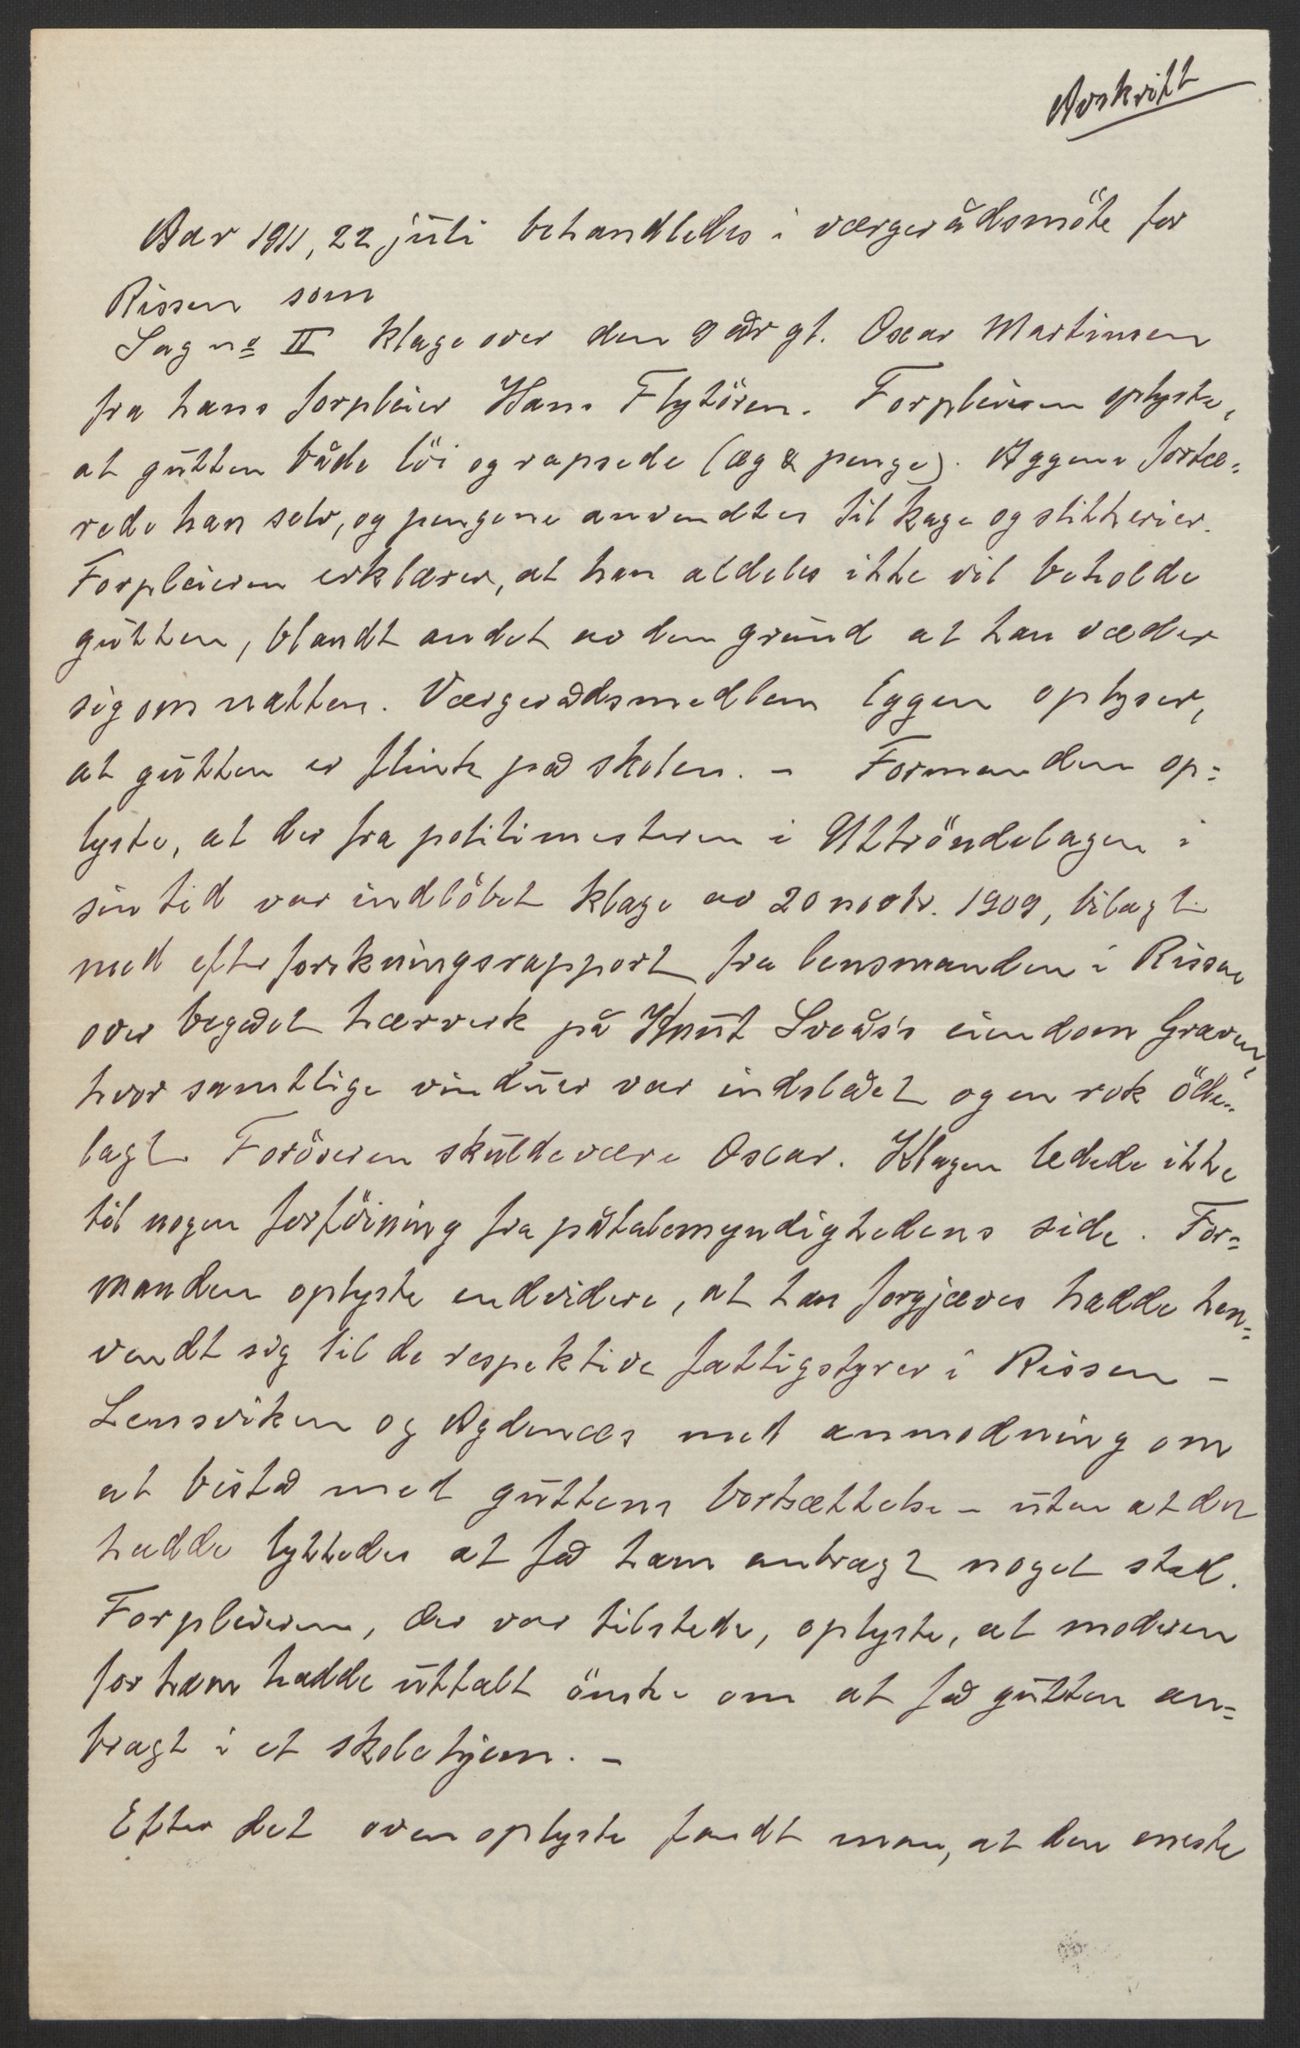 Avskrift
Aar 1911, 22 juli behandledes i værgerådsmöte for
Rissen som
Sag no II klage over den 9 aar gl. Oscar Martinsen
fra hans forpleier Hans Flytören. Forpleieren oplyste,
at gutten både löi og rapsede (æg & penge). Æggene fortæ-
rede han selv, og pengene anvendtes til kage og slikkerier.
Forpleieren erklærer, at han aldeles ikke vil beholde
gutten, blandt andet av den grund at han væder
sig om natten. Værgeraadsmedlem Eggen oplyser,
at gutten er flink paa skolen. – Formanden op-
lyste, at der fra politimesteren i Uttröndelagen i
sin tid var indlöbet klage av 20 novbr. 1909, bilagt
med efterforskningsrapport fra lensmanden i Rissen
over begaaet hærverk på Knut Svaås's eiendom Graven,
hvor samtlige vinduer var indslaaet og en rok öde-
lagt Foröveren skulde være Oscar. Klagen ledede ikke
til nogen forföining fra påtalemyndighedens side. For-
manden oplyste endvidere, at han forgjæves hadde hen-
vendt sig til de respektive fattigstyrer i Rissen –
Lensviken og Agdenæs med anmodning om
at bistaa med guttens bortsættelse – uten at det
hadde lykkedes at faa ham anbragt noget sted.
Forpleieren, der var tilstede, oplyste, at moderen
for ham hadde uttalt önske om at faa gutten an-
bragt i et skolehjem. –
Efter det ovenoplyste fandt man, at den eneste